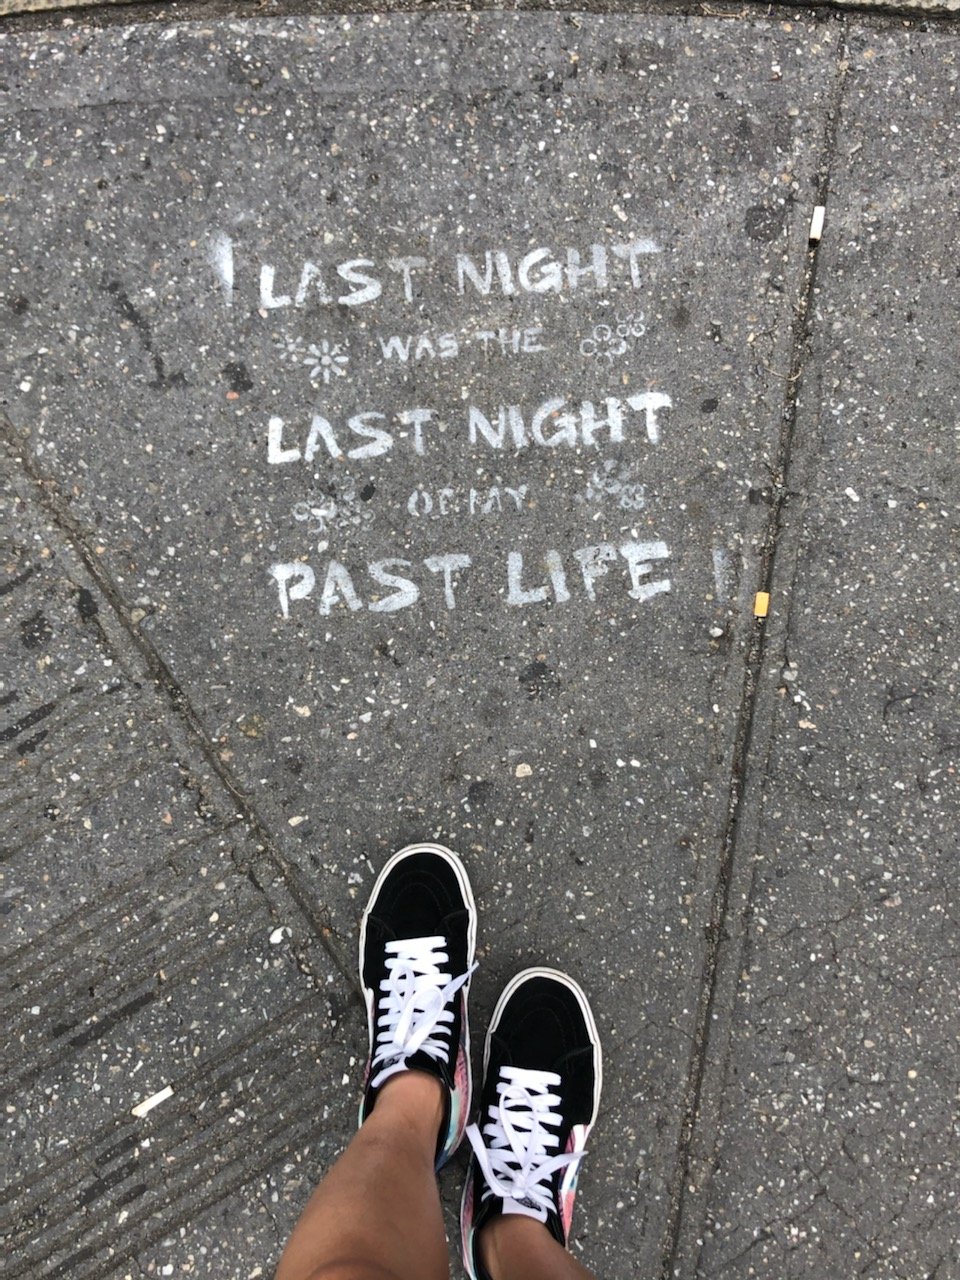 LAST NIGHT
WAS THE
LAST NIGHT
OF MY
PAST LIFE